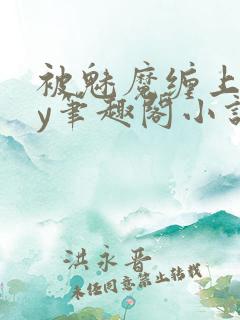 被魅魔缠上
y笔趣阁小
洪永晋
未经同意禁止转载